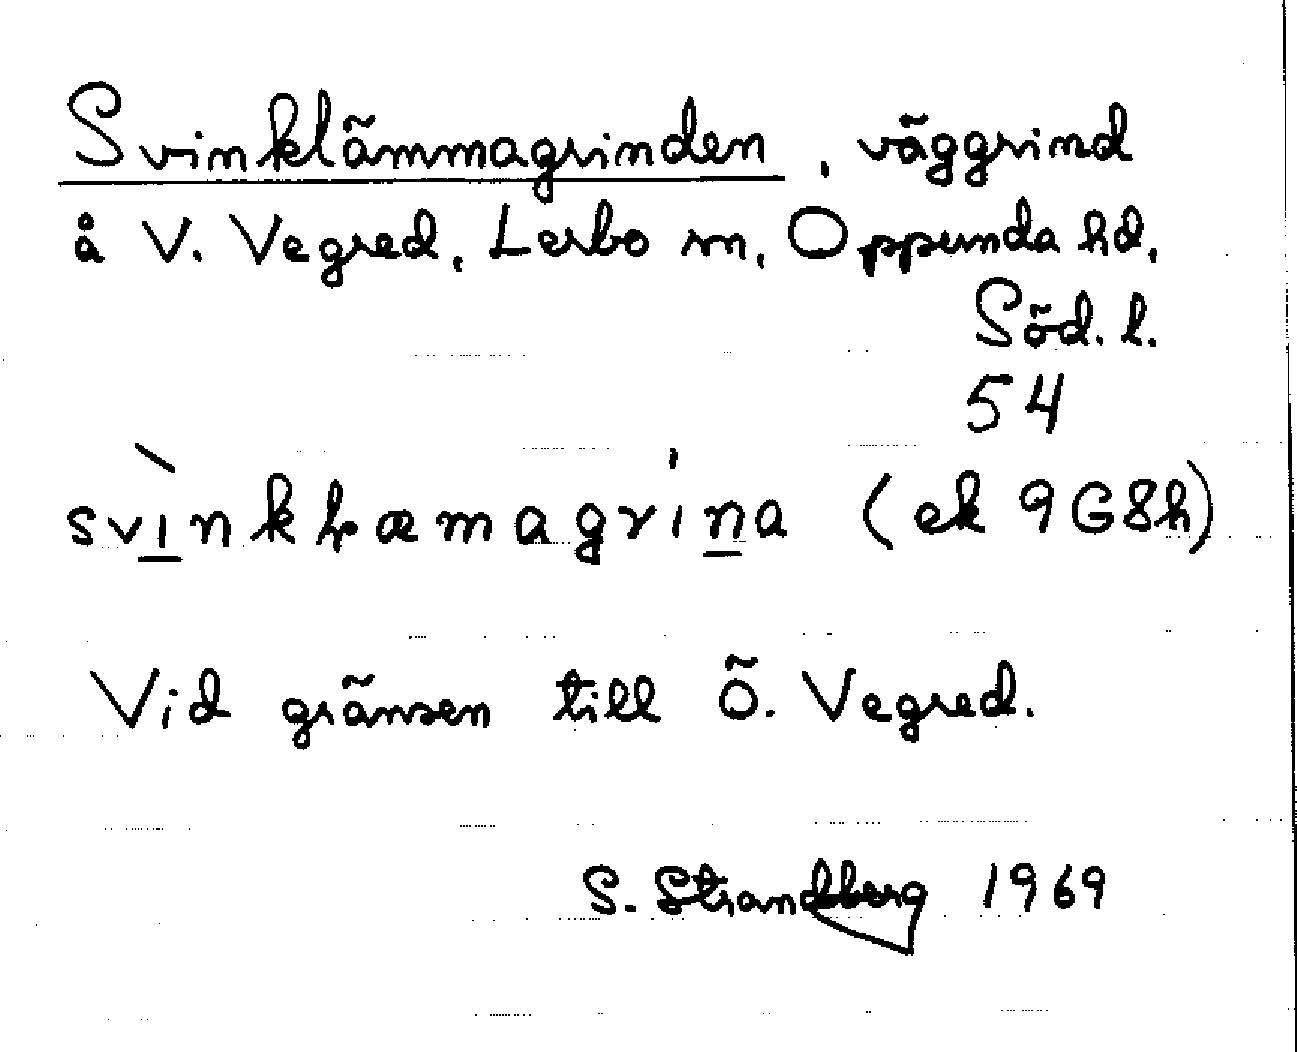 Svinklämmagrinden, väggrind
å V. Vegred, Lerbo sn, Oppunda hd,
Söd. l.
54
svìnkḷæmagrina (ek 9G8h)
Vid gränsen till Ö. Vegred.
S. Strandberg 1969